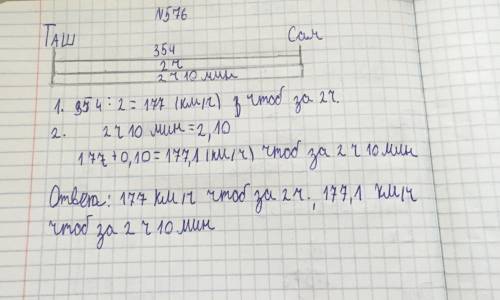 №576
Таш Сам
354
2 ч
2 ч 10 мин
1. 354 : 2 = 177 (км/ч) чтоб за 2 ч.
2. 2 ч 10 мин = 2,10
177 + 0,10 = 177,1 (км/ч) чтоб за 2 ч 10 мин
Ответ: 177 км/ч чтоб за 2 ч., 177,1 км/ч
чтоб за 2 ч 10 мин